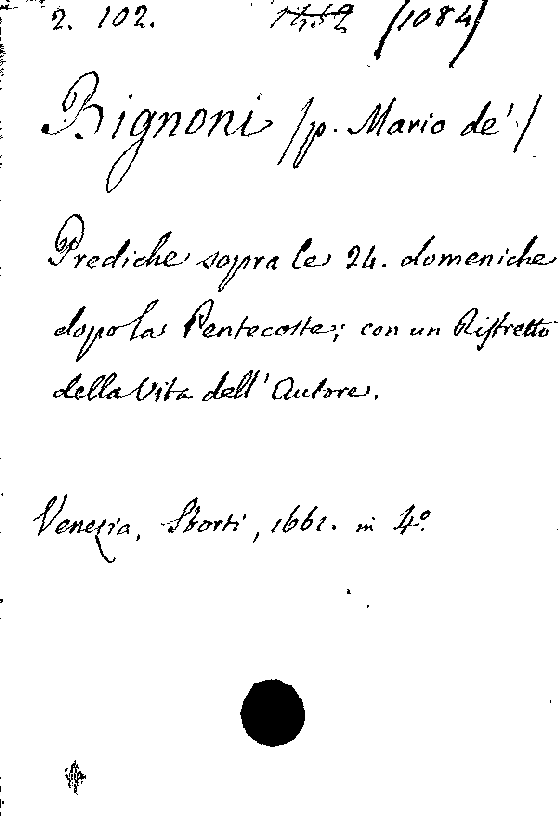 2. 102. (1084)
Bignoni /p. Mario de'/
Prediche sopra le 24. domeniche
dopo la Pentecoste; con un Ristretto
della Vita dell' Autore.
Venezia, Storti, 1661. in 4°.